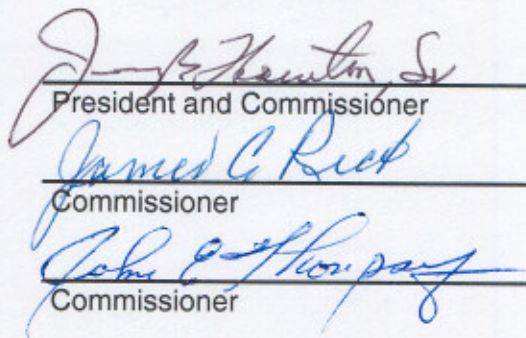 Sr
President and Commissioner
James C Rice
Commissioner
John E Thompson
Commissioner